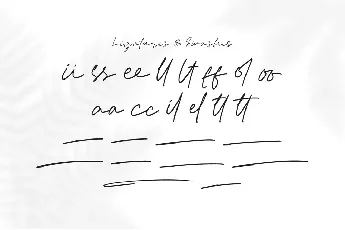 Ligatures & Swashes
ii ss ee ll lt ff ol oo
aa cc il el tl tt